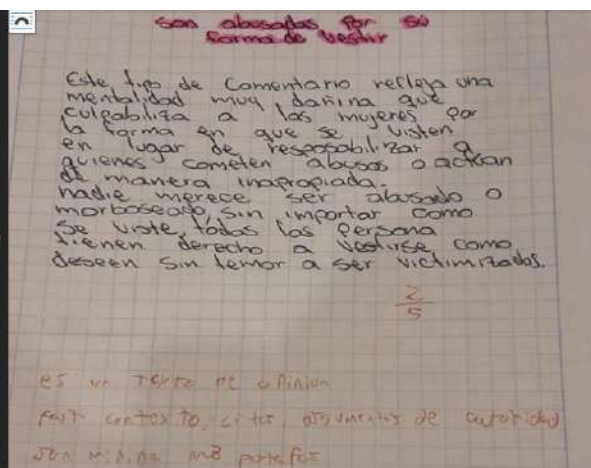 son abusadas por su
forma de vestir
Este tipo de comentario refleja una
mentalidad muy dañina que
culpabiliza a las mujeres por
la forma en que se visten
en lugar de resposabilizar a
quienes cometen abusos o actúan
de manera inapropiada.
nadie merece ser abusado o
morboseado, sin importar como
se viste, todas las persona
tienen derecho a vestirse como
deseen sin temor a ser victimizados.
2
5
es un texto de opinion
falt contexto, citas, argumentos de autoridad
son minimo